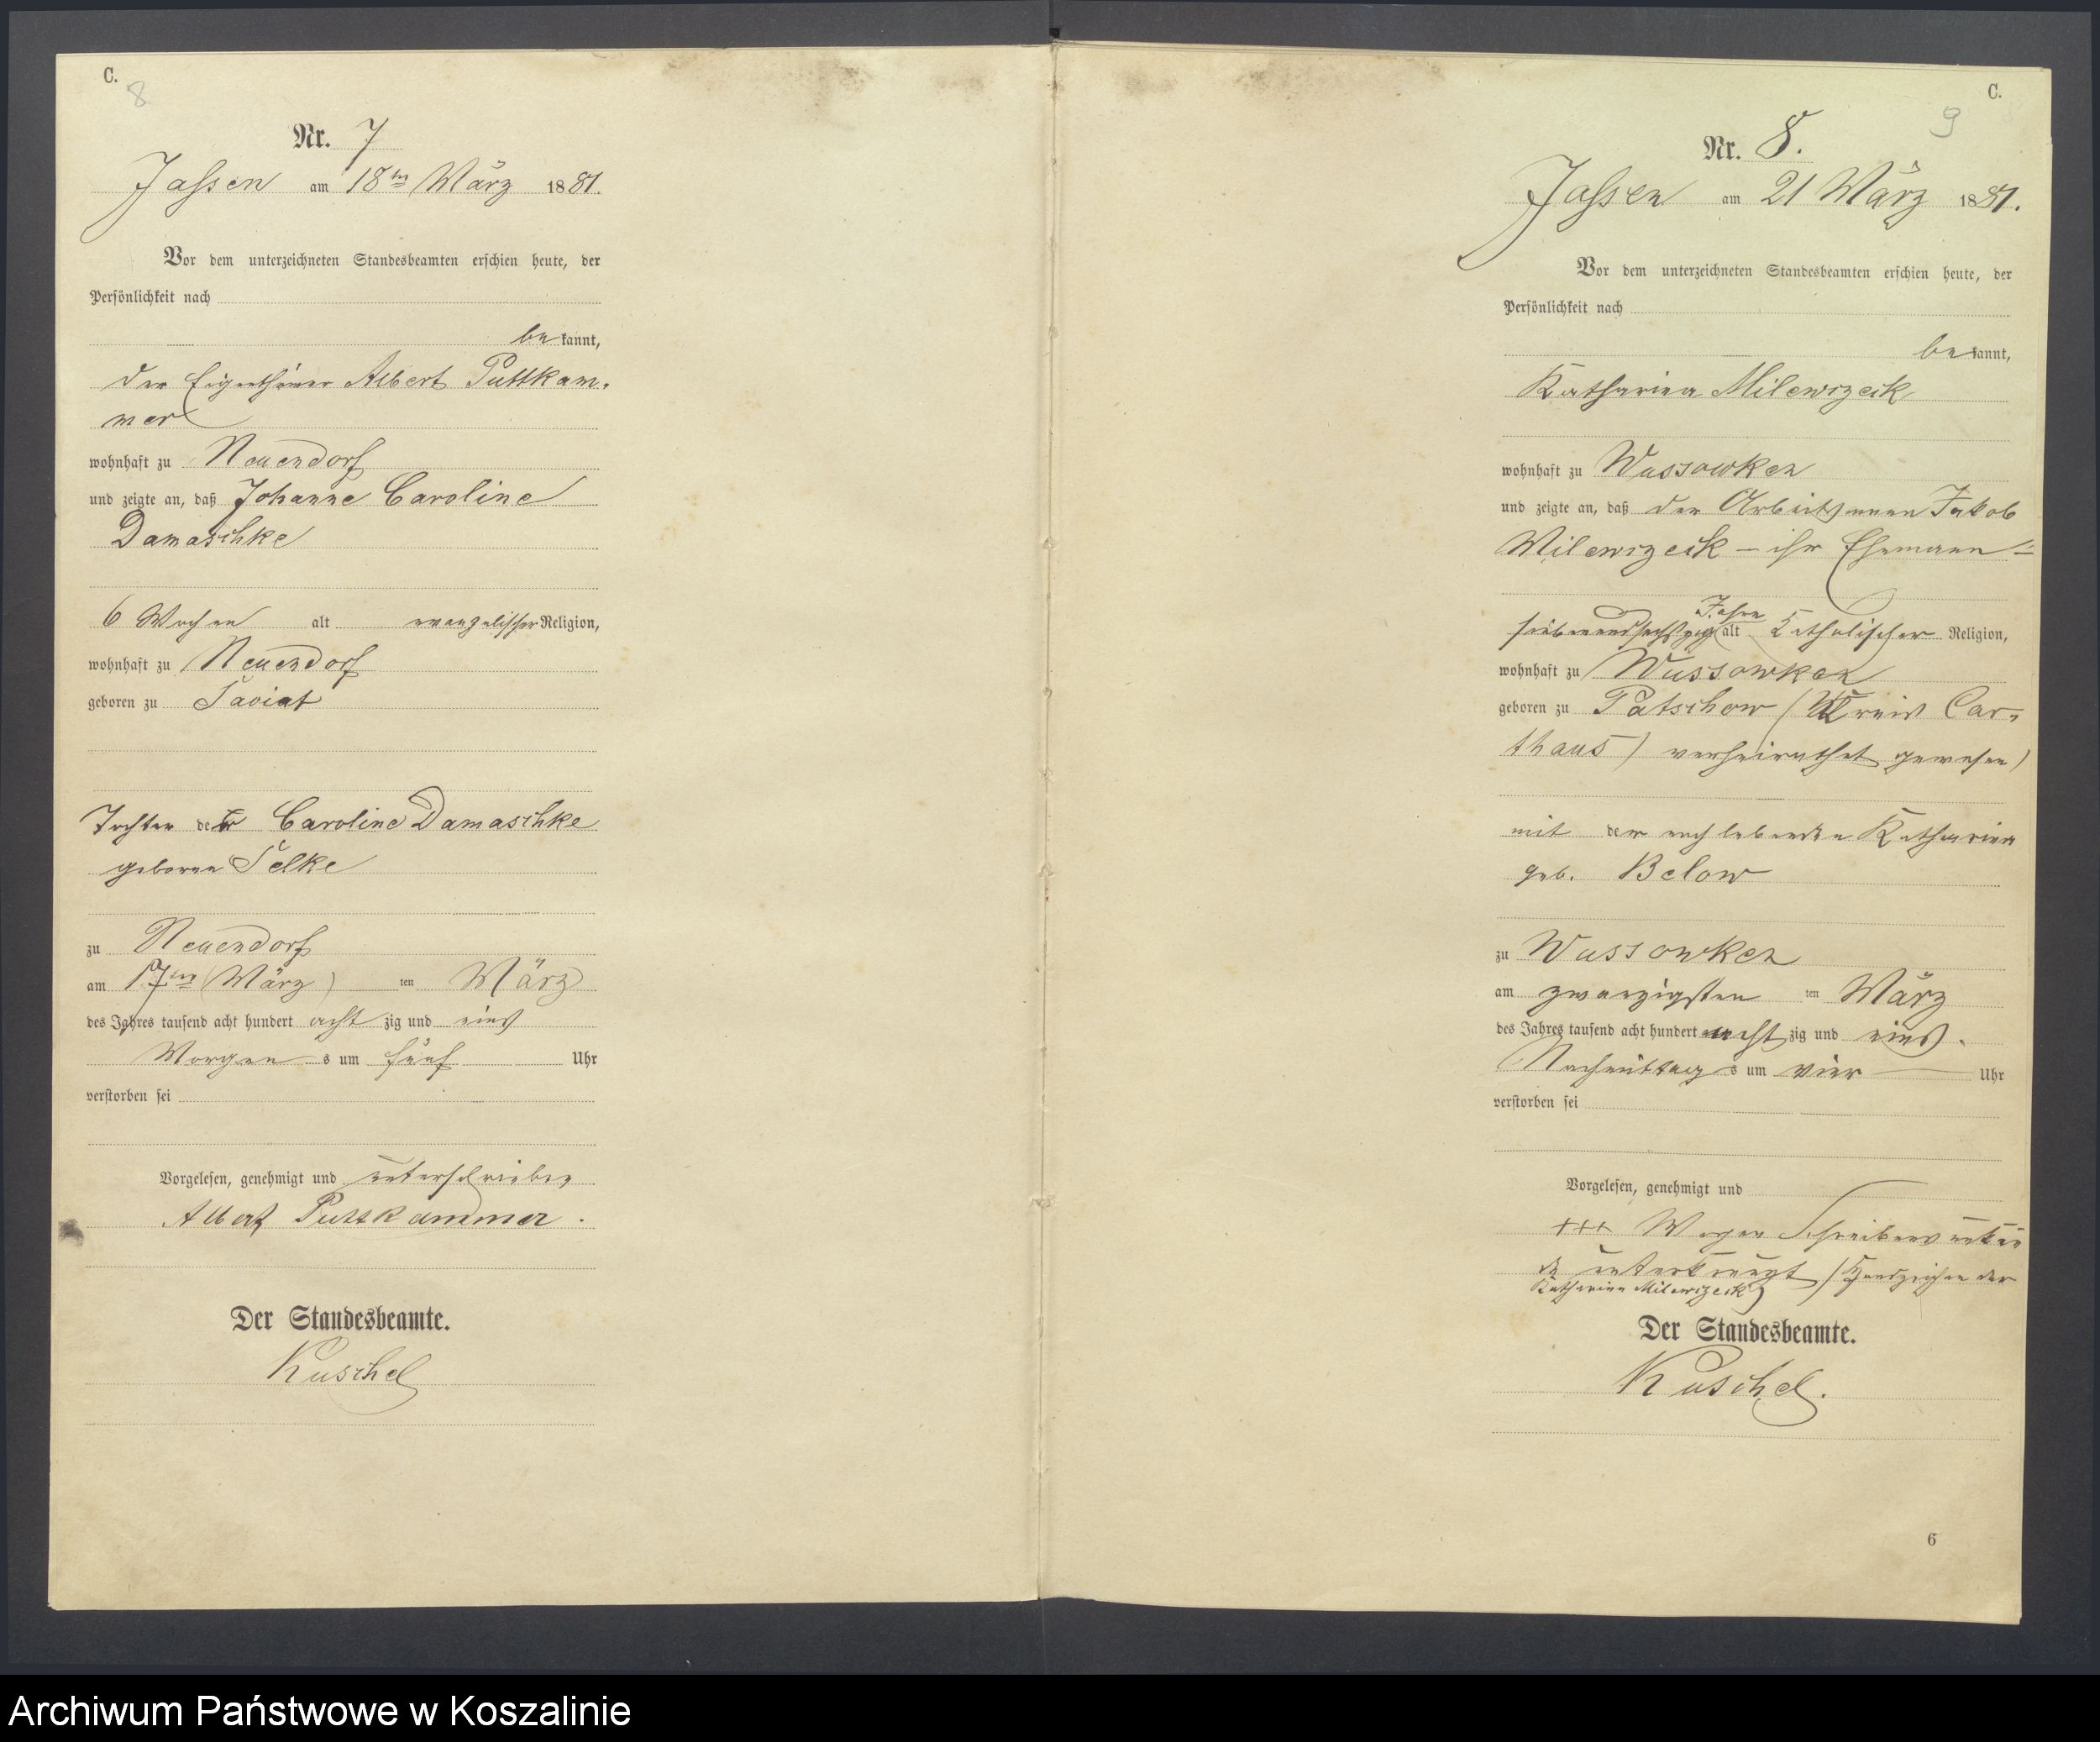 C.
8
Nr. 7
Jassen am 18ten März 1881.
Vor dem unterzeichneten Standesbeamten erschien heute, der
Persönlichkeit nach
bekannt,
der Eigenthümer Albert Puttkam-
mer
wohnhaft zu Neuendorf
und zeigte an, daß Johanne Caroline
Damaschke
6 Wochen alt evangelischer Religion,
wohnhaft zu Neuendorf
geboren zu
Tochter der Caroline Damaschke
geborene Selke
zu Neuendorf
am 17ten (März) ten März
des Jahres tausend acht hundert acht zig und eins
Morgens um fünf Uhr
verstorben sei
Vorgelesen, genehmigt und unterschrieben
Albert Puttkammer.
Der Standesbeamte.
Kuschel
C.
9
Nr. 8.
Jassen am 21 März 1881.
Vor dem unterzeichneten Standesbeamten erschien heute, der
Persönlichkeit nach
bekannt,
Katharina Milewszeik
wohnhaft zu Wussowken
und zeigte an, daß der Arbeitsmann Jakob
Milewszeik – ihr Ehemann –
Jahre
siebenundsechszig alt Katholischer Religion,
wohnhaft zu Wussowken
geboren zu Patschow (Kreis Car-
thaus) verheirathet gewesen
mit der noch lebenden Katharina
geb. Below
zu Wussowken
am zwanzigsten ten März
des Jahres tausend acht hundert acht zig und eins.
Nachmittags um vier Uhr
verstorben sei
Vorgelesen, genehmigt und
+++ Wegen Schreibensunkun
de unterkreuzt (Handzeichen der
Katharina Milewszeik)
Der Standesbeamte.
Kuschel.
6
Archiwum Państwowe w Koszalinie